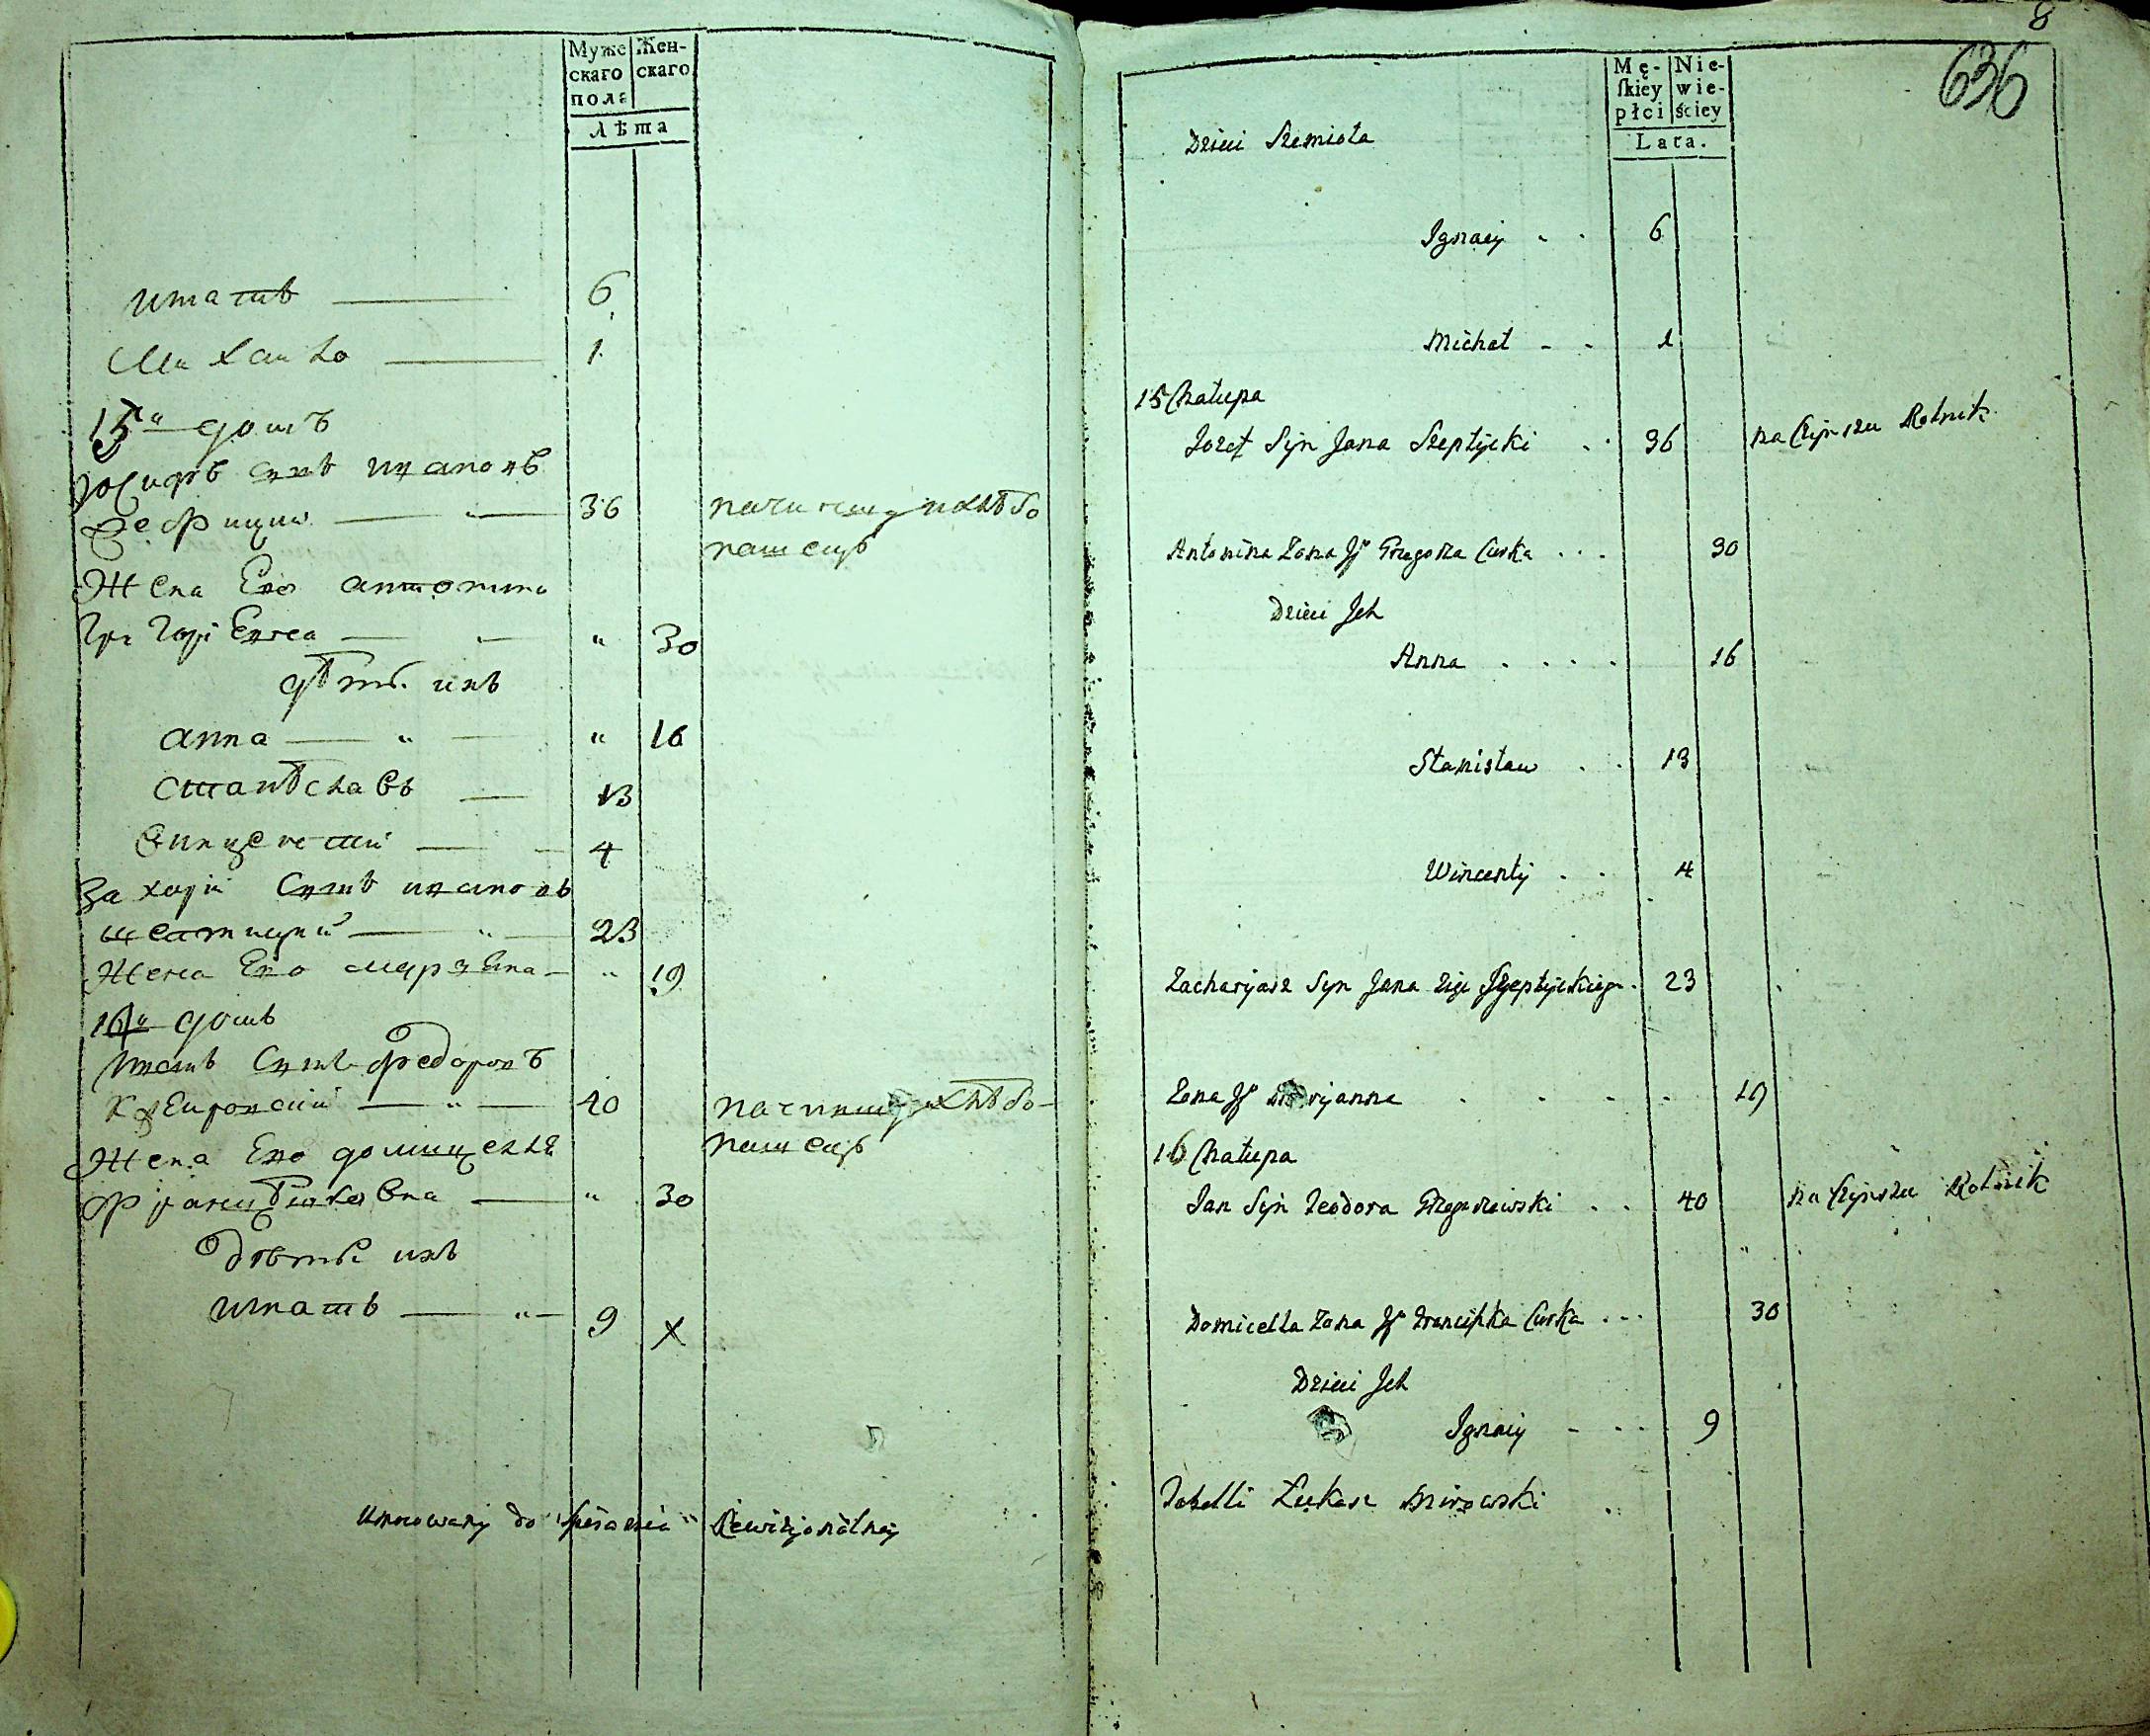 Муже
скаго
пола
Жен-
скаго
лѣта
Игнатъ 6
Михайло 1
15" домъ
Юсифъ сынъ Ивановъ
36 на чиншу хлѣбо
пашецъ
Жена Его Антонина
Григорiевна " 30
дѣти ихъ
Анна " " 16
Станѣславъ 13
Винцентий 4
Захарiй Сынъ Ивановъ
Шептицкий " 23
Жена Его Маряна " 19
16" домъ
Иванъ Сынъ Федоровъ
" 40 на чиншу хлѣбо-
пашецъ
Жена Его Домицелля
Францѣшковна " 30
Дѣти ихъ
Игнатъ " 9 x
Umocowany do Pisania Rewizyonalney
8
636
Mę-
ſkiey
płci
Nie-
wie-
ściey
Lata.
Dzieci Szemiota
Ignacy 6
Michał 1
15 Chałupa
Jozef Syn Jana Szeptycki 36 na Czynszu Rolnik
Antonina Zona Jº Grzegorza Curka 30
Dzieci Jch
Anna 16
Stanisław 13
Wincenty 4
Zacharyasz Syn Jana tego Szeptyckiego 23
Zona Jº Maryanna 19
16 Chałupa
Jan Syn Teodora Grzegorzewski 40 na Czynszu Rolnik
Domicella Zona Jº Franciszka Curka 30
Dzieci Jch
Ignacy 9
Tabelli Łukasz